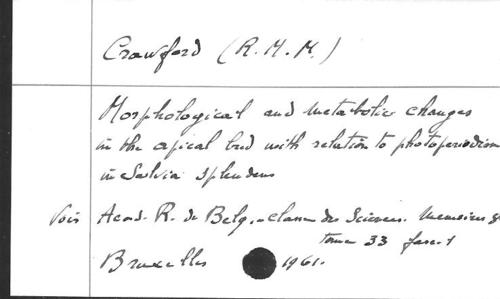 Crawford (R.M.M.)
Morphological and metabolic changes
in the apical bud with relation to photoperiodism
in Salvia splendens
Voir Acad. R. de Belg. - classe des Sciences. Memoires
tome 33 fasc. 1
Bruxelles 1961.